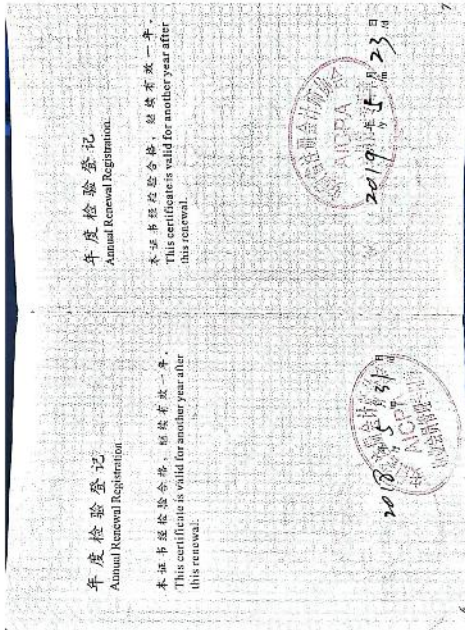 年度检验登记
Annual Renewal Registration
本证书经检验合格，继续有效一年。
This certificate is valid for another year after
this renewal.
2018 年 5 月 31 日
/y /m /d
6
年度检验登记
Annual Renewal Registration
本证书经检验合格，继续有效一年。
This certificate is valid for another year after
this renewal.
AICPA
2019 年 5 月 23 日
/y /m /d
7